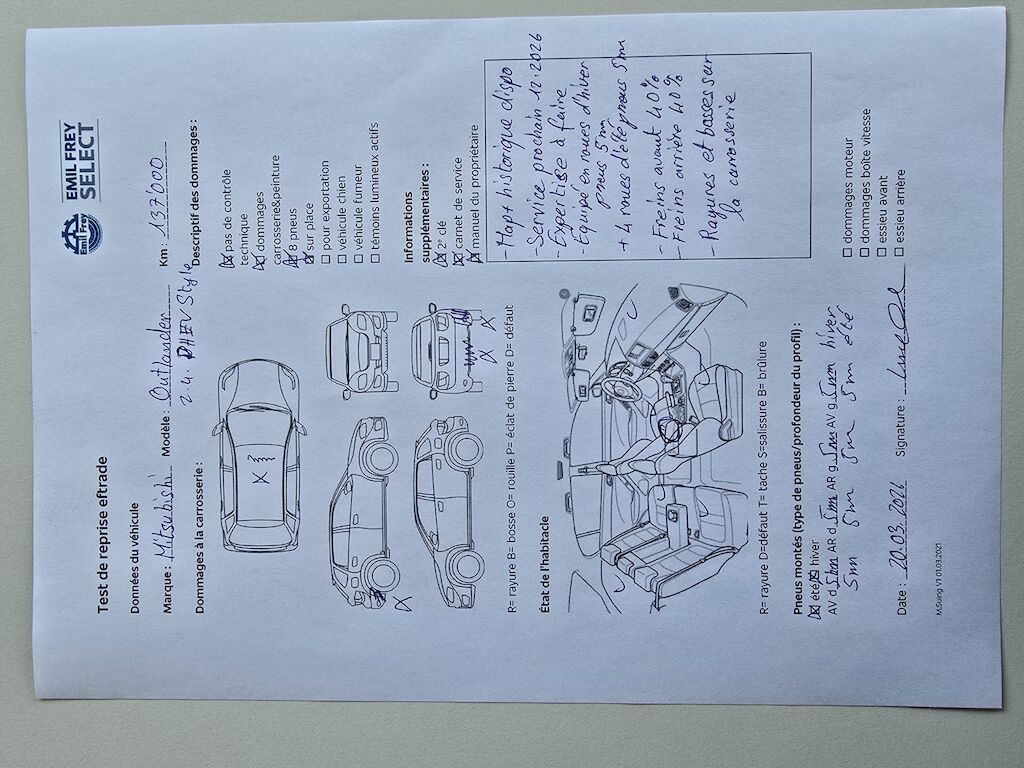 EMIL FREY
SELECT
Emil Frey
Test de reprise eftrade
Données du véhicule
Marque : Mitsubishi Modèle : Outlander Km : 137'000
2.4. PHEV Style
Dommages à la carrosserie :
Descriptif des dommages :
☒ pas de contrôle
technique
☒ dommages
carrosserie&peinture
☒ 8 pneus
☒ sur place
☐ pour exportation
☐ véhicule chien
☐ véhicule fumeur
☐ témoins lumineux actifs
Informations
supplémentaires :
☒ 2° clé
☒ carnet de service
☒ manuel du propriétaire
R= rayure B= bosse O= rouille P= éclat de pierre D= défaut
État de l'habitacle
- Map + historique dispo
- Service prochain 12.2026
- Expertise à faire
- Equipé en roues d'hiver
pneus 5mm
+ 4 roues d'été pneus 5mm
- Freins avant 40%
- Freins arrière 40%
- Rayures et bosses sur
la carrosserie
R= rayure D=défaut T= tache S=salissure B= brûlure
Pneus montés (type de pneus/profondeur du profil) :
☒ été ☒ hiver
AV d 5mm AR d 5mm AR g 5mm AV g 5mm hiver
5mm 5mm 5mm 5mm été
☐ dommages moteur
☐ dommages boîte vitesse
☐ essieu avant
☐ essieu arrière
Date : 20.03.2026 Signature :
M.Suing V1 01.03.2021